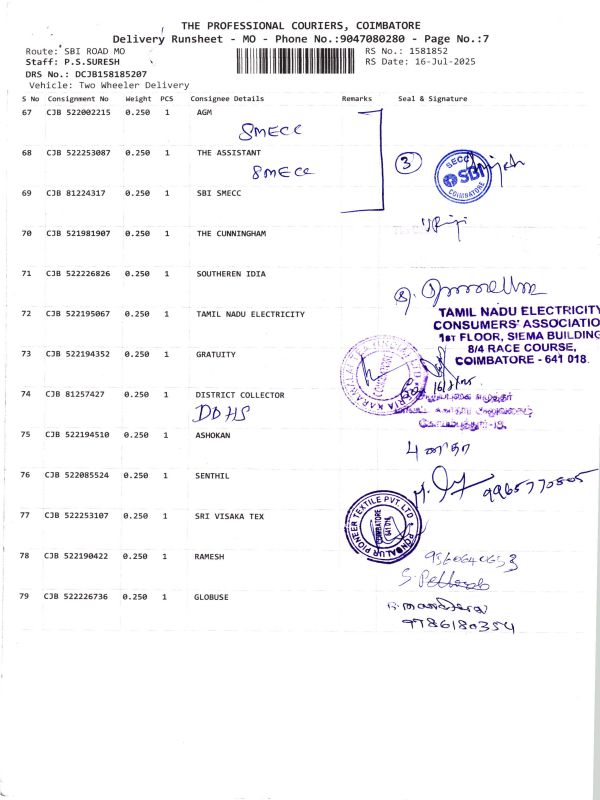 THE PROFESSIONAL COURIERS, COIMBATORE
Delivery Runsheet - MO - Phone No.:9047080280 - Page No.:7
Route: SBI ROAD MO
RS No.: 1581852
Staff: P.S.SURESH
RS Date: 16-Jul-2025
DRS No.: DCJB158185207
Vehicle: Two Wheeler Delivery
S No Consignment No Weight PCS Consignee Details Remarks Seal & Signature
67 CJB 522002215 0.250 1 AGM
SMECC
68 CJB 522253087 0.250 1 THE ASSISTANT
SMECC
3
SECC
SBI
COIMBATORE
69 CJB 81224317 0.250 1 SBI SMECC
70 CJB 521981907 0.250 1 THE CUNNINGHAM
71 CJB 522226826 0.250 1 SOUTHEREN IDIA
72 CJB 522195067 0.250 1 TAMIL NADU ELECTRICITY
TAMIL NADU ELECTRICITY
CONSUMERS' ASSOCIATIO
1ST FLOOR, SIEMA BUILDING
8/4 RACE COURSE,
COIMBATORE - 641 018.
73 CJB 522194352 0.250 1 GRATUITY
74 CJB 81257427 0.250 1 DISTRICT COLLECTOR
DDHS
75 CJB 522194510 0.250 1 ASHOKAN
76 CJB 522085524 0.250 1 SENTHIL
77 CJB 522253107 0.250 1 SRI VISAKA TEX
PIONEER TEXTILE PVT. LTD
COIMBATORE
641 018
78 CJB 522190422 0.250 1 RAMESH
79 CJB 522226736 0.250 1 GLOBUSE
9786180354